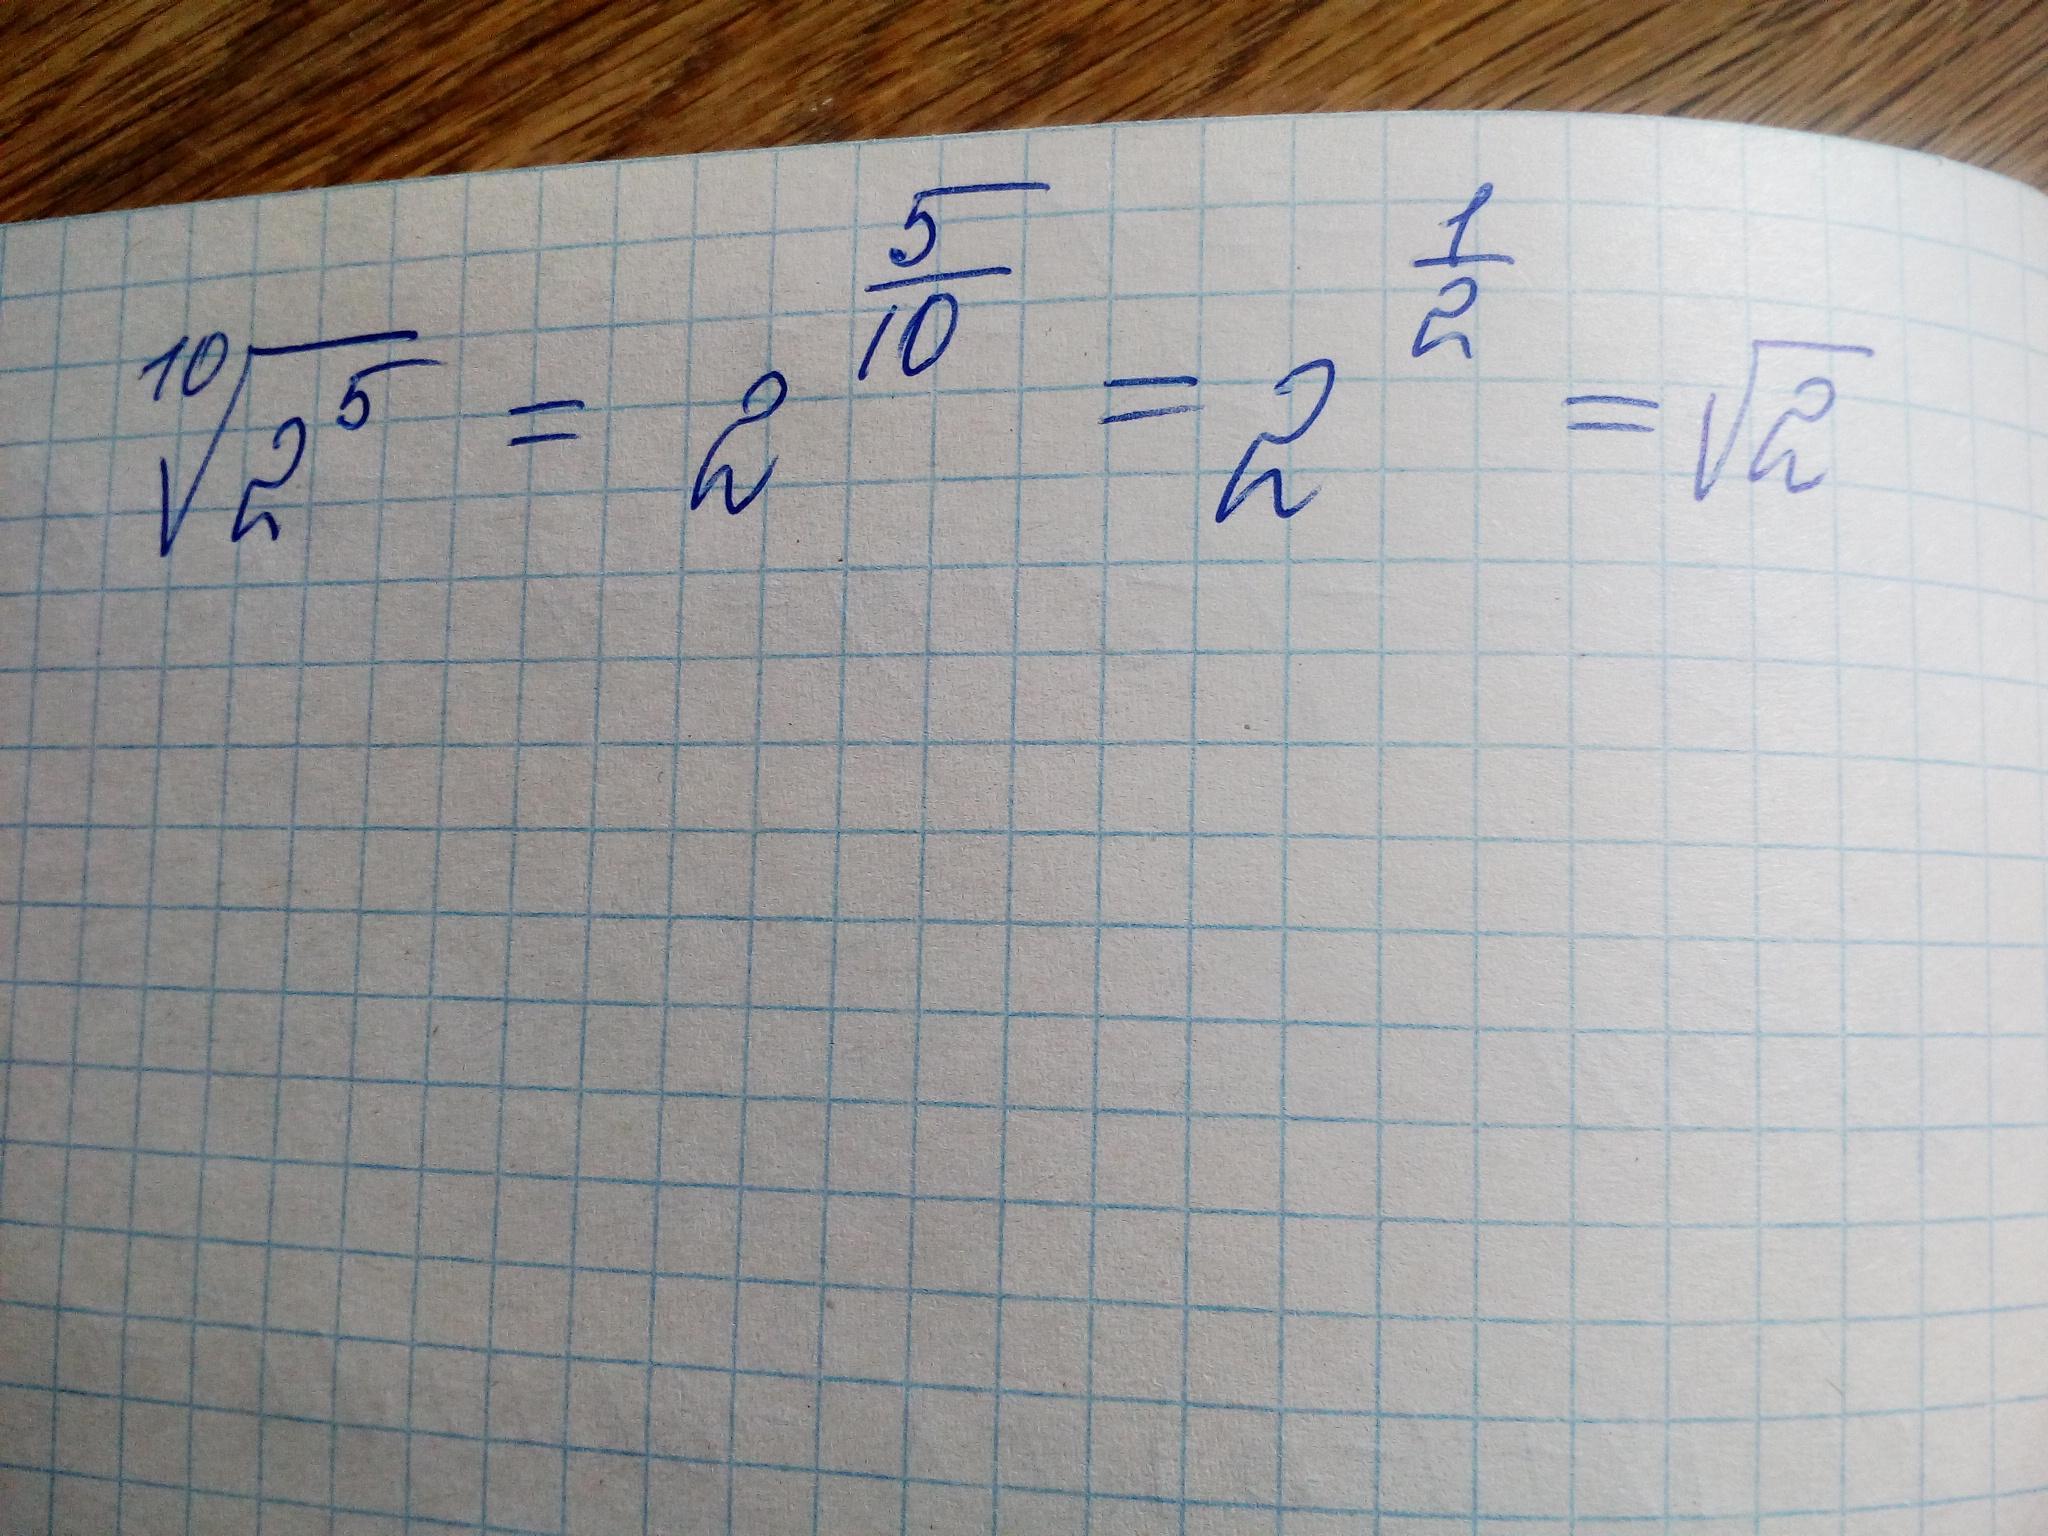 ¹⁰√2⁵ = 2^(5/10) = 2^(1/2) = √2